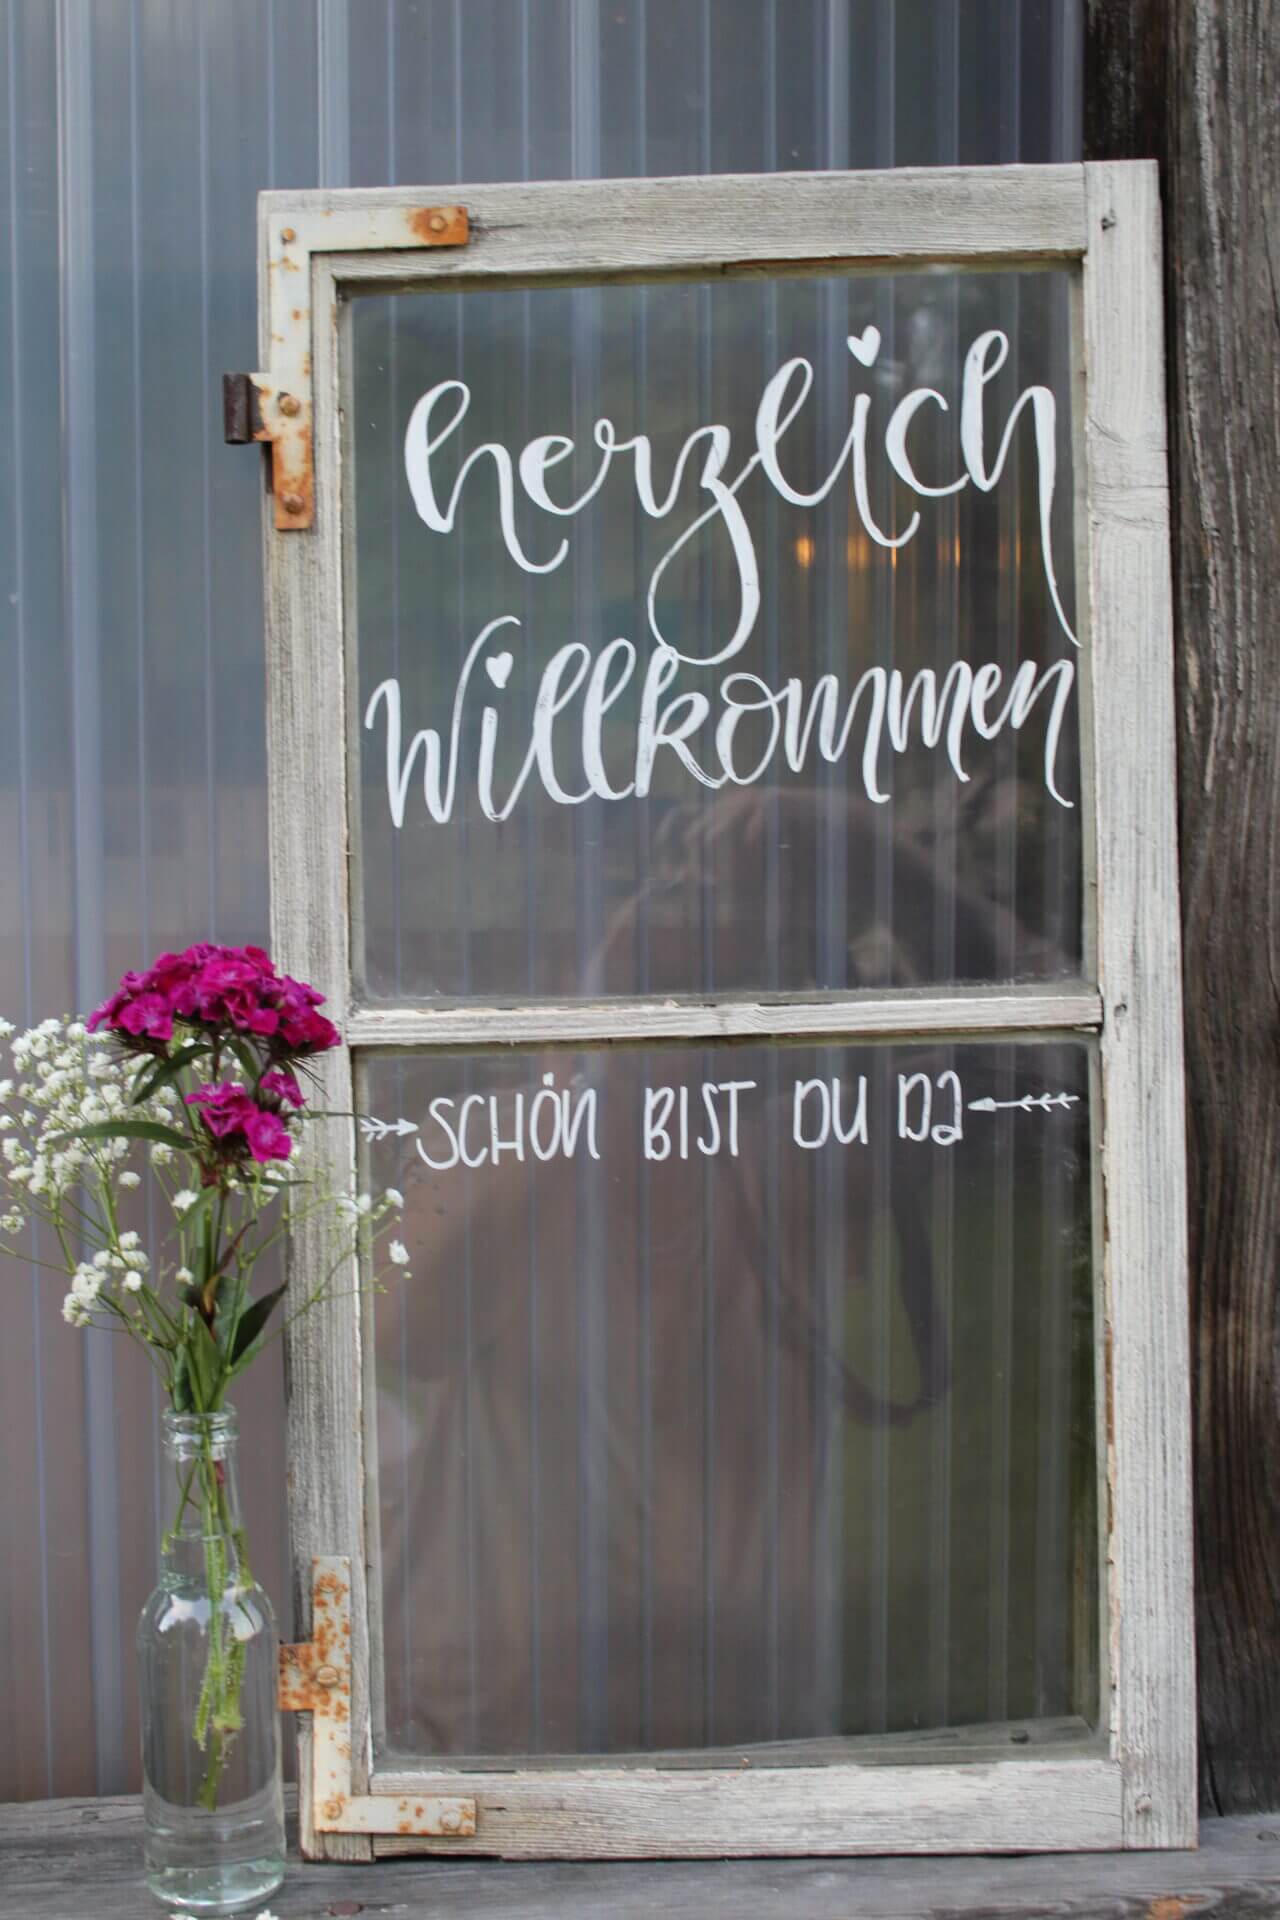 herzlich
Willkommen
SCHÖN BIST DU DA